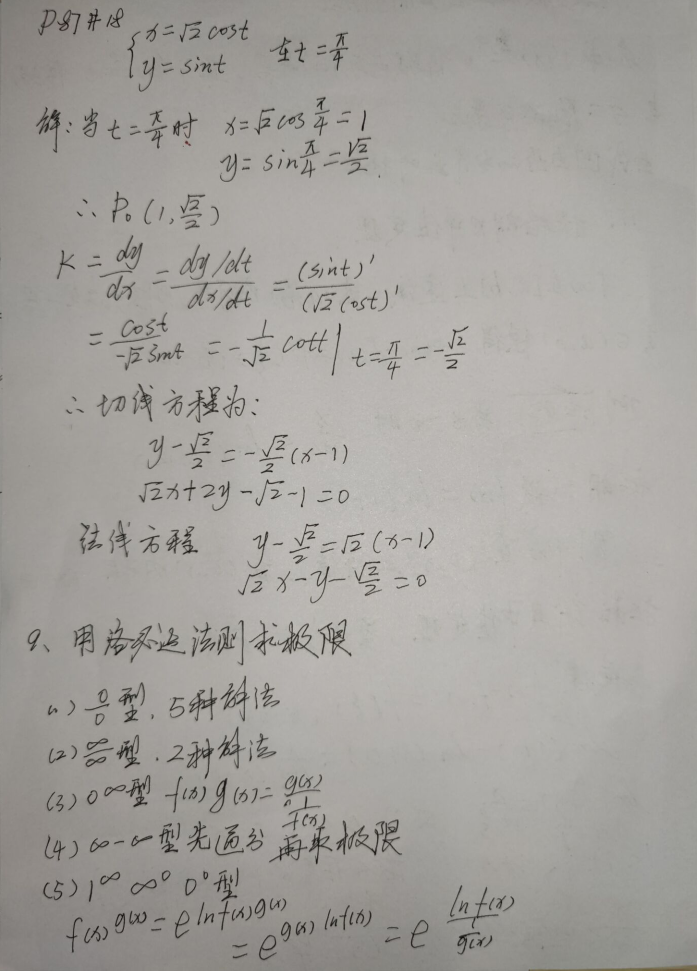 P87#18
{x=√2cost
y=sint 在t=π/4
解:当t=π/4时 x=√2cosπ/4=1
y=sinπ/4=√2/2.
∴P₀(1,√2/2)
K=dy/dx=(dy/dt)/(dx/dt)=(sint)'/(√2cost)'
=cost/(-√2sint)=-1/√2 cott|t=π/4=-√2/2
∴切线方程为:
y-√2/2=-√2/2(x-1)
√2x+2y-√2-1=0
法线方程 y-√2/2=√2(x-1)
√2x-y-√2/2=0
9、用洛必达法则求极限
(1)0/0型.5种解法
(2)∞/∞型.2种解法
(3)0∞型 f(x)g(x)=g(x)/(1/f(x))
(4)∞-∞型先通分再取极限
(5)1^∞ ∞⁰ 0⁰型
f(x)^g(x)=e^lnf(x)^g(x)
=e^g(x)lnf(x)=e^(lnf(x)/(1/g(x)))